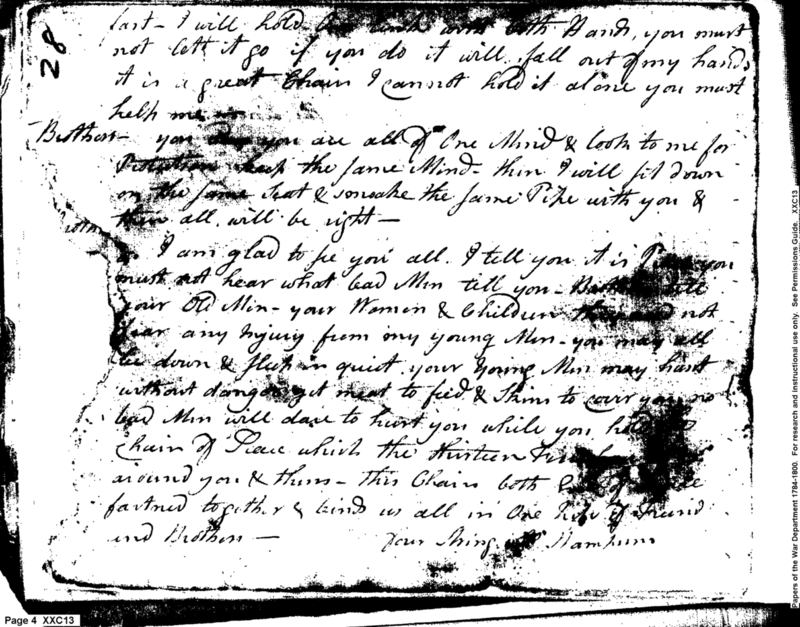 28
fast - I will hold with both Hands, you must
not lett it go if you do it will fall out of my hands
it is a great Chain I cannot hold it alone you must
help me
Brothers - you you are all of One Mind & look to me for
Protection keep the same Mind - then I will sit down
on the same Seat & smoake the same Pipe with you &
then all will be right -
I am glad to see you all. I tell you it is you
must not hear what bad Men tell you -
your Old Men - your Women & Children not
fear any Injury from my young Men - you may all
lie down & sleep in quiet. your Young Men may hunt
without danger get meat to feed & Skins to no
bad Men will dare to hurt you while you
Chain of Peace which the thirteen
around you & - this Chain both
fastned together & binds us all in One of Friend
and Brothers - Wampum
Page 4 XXC13
Papers of the War Department 1784-1800. For research and instructional use only. See Permissions Guide. XXC13